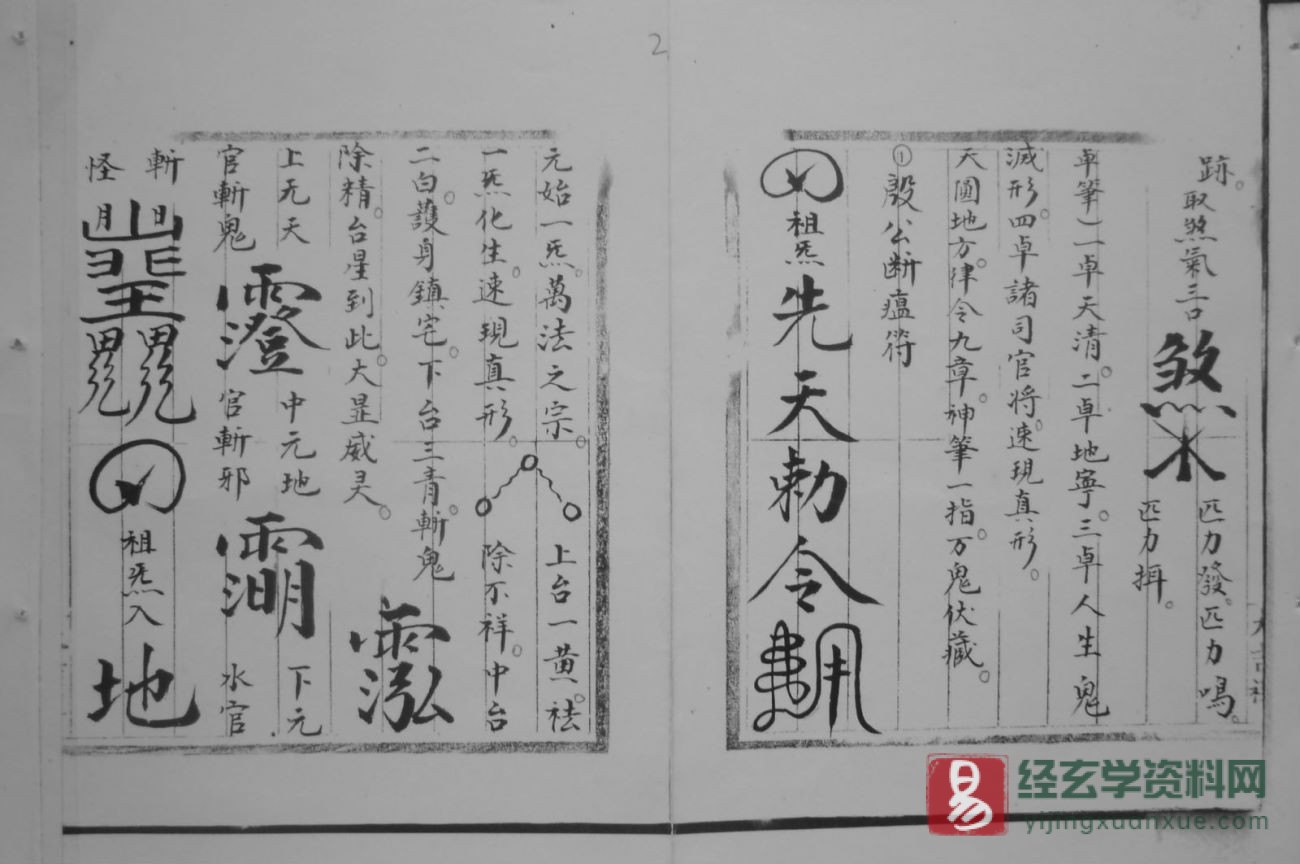 2
跡。取煞氣三口
煞
匹力發。匹力鳴。
匹力揖。
卓筆）一卓天清。二卓地寧。三卓人生鬼
滅形。四卓諸司官将。速現真形。
天圓地方。律令九章。神筆一指。万鬼伏藏。
①殷公断瘟符
祖炁
先天勅令
元始一炁。萬法之宗。
一炁化生。速現真形。
上台一黄。祛
除不祥。中台
二白。護身鎮宅。下台三青。斬鬼
除精。台星到此。大显威灵。
上元天
官斬鬼
中元地
官斬邪
下元
水官
斬
怪
祖炁入
地
易
经玄学资料网
yijingxuanxue.com